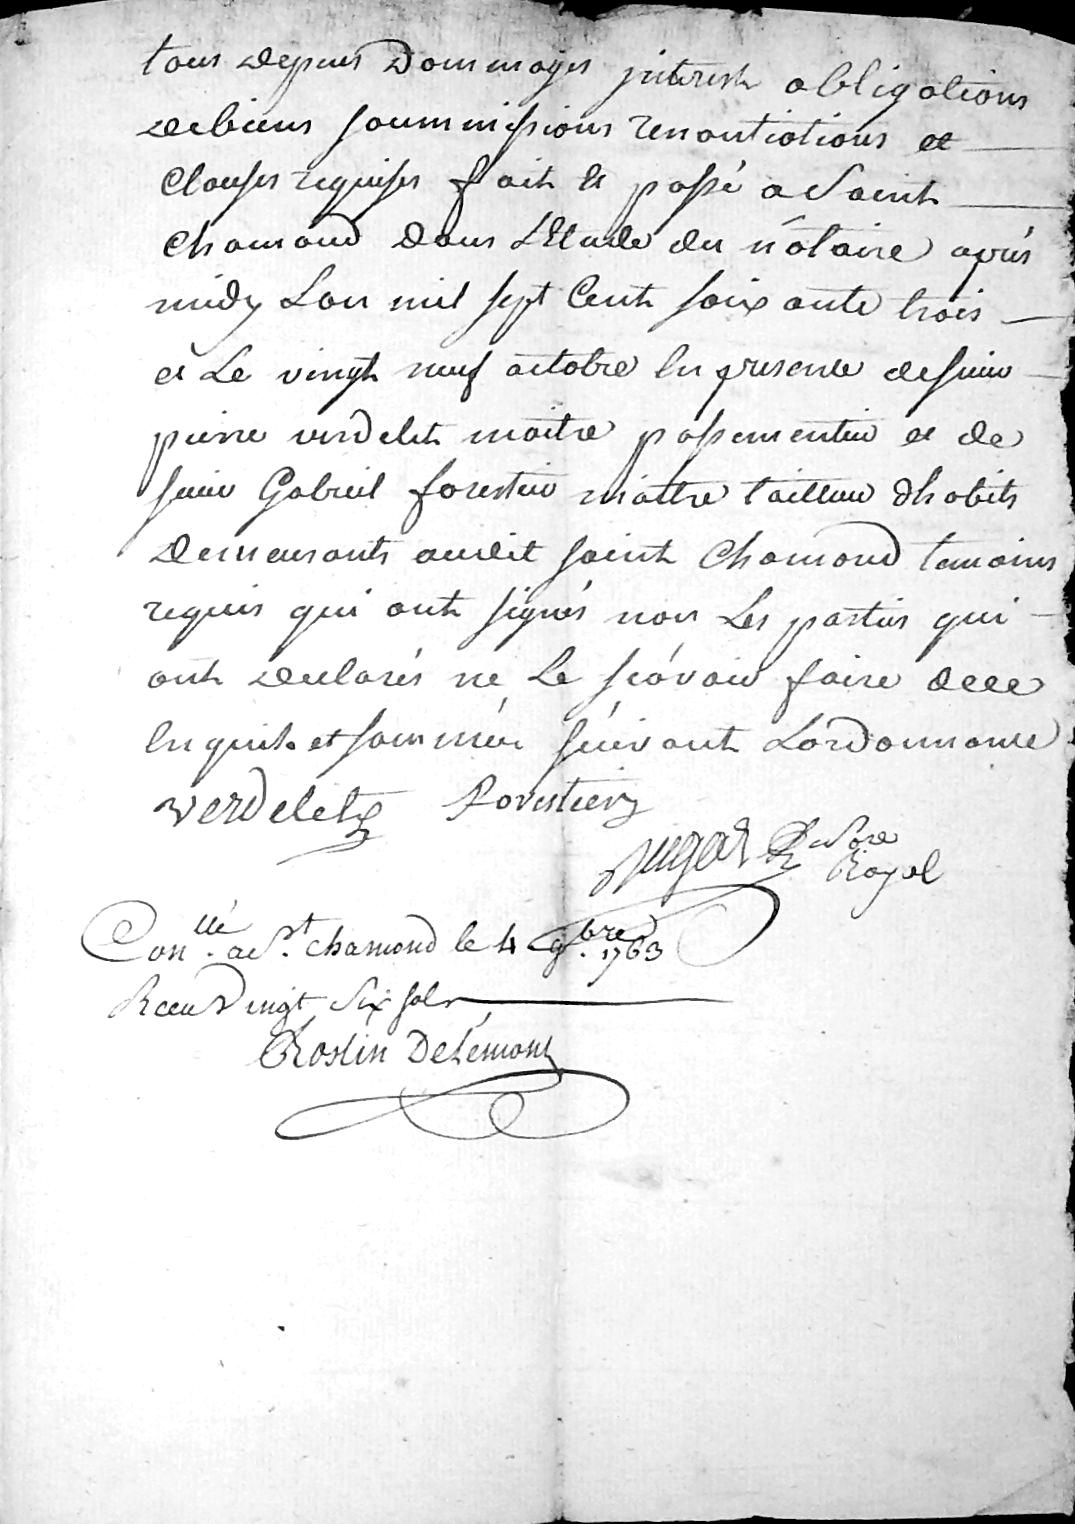 tous depens dommages interest obligations
de biens soummissions renontiations et
clauses requises fait et passé a Saint
chamond dans L'Etude du nótaire aprés
midy Lan mil sept Cent soixante trois
et Le vingt neuf octobre En presence de sieur
pierre verdelet maitre passementier et de
sieur Gabriel forestier maitre tailleur dhabits
demeurants audit saint Chamond temoins
requis qui ont signés non Les parties qui
ont declarés ne Le sçávoir faire de ce
Enquis et sommées suivant L'ordonnance
verdelet forestier
Royal
Con.llé a St. chamond le 4 9.bre 1763
Receu Vingt Six sols
Rostin Delémont